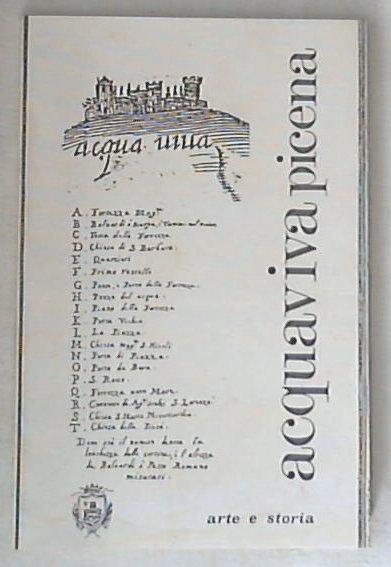 acqua uiua
A. Fortezza Magg.re
B.
C. Porta della Fortezza
D. Chiesa di S. Barbara.
E. Quartieri
F. Primo Vascello
G. Pozzo, e Porta della Fortezza.
H. Pozzo del acqua
I. Piano della Fortezza
K. Porta Vechia
L. La Piazza
M. Chiesa magg.re S. Nicolò
N. Porta di Piazza
O. Porta da Bora
P. S. Rocco
Q. Fortezza
R. S. Lorenzo
S. Chiesa S. Maria Misericordia
T. Chiesa della Pietà.
di
misurati.
acquaviva picena
arte e storia